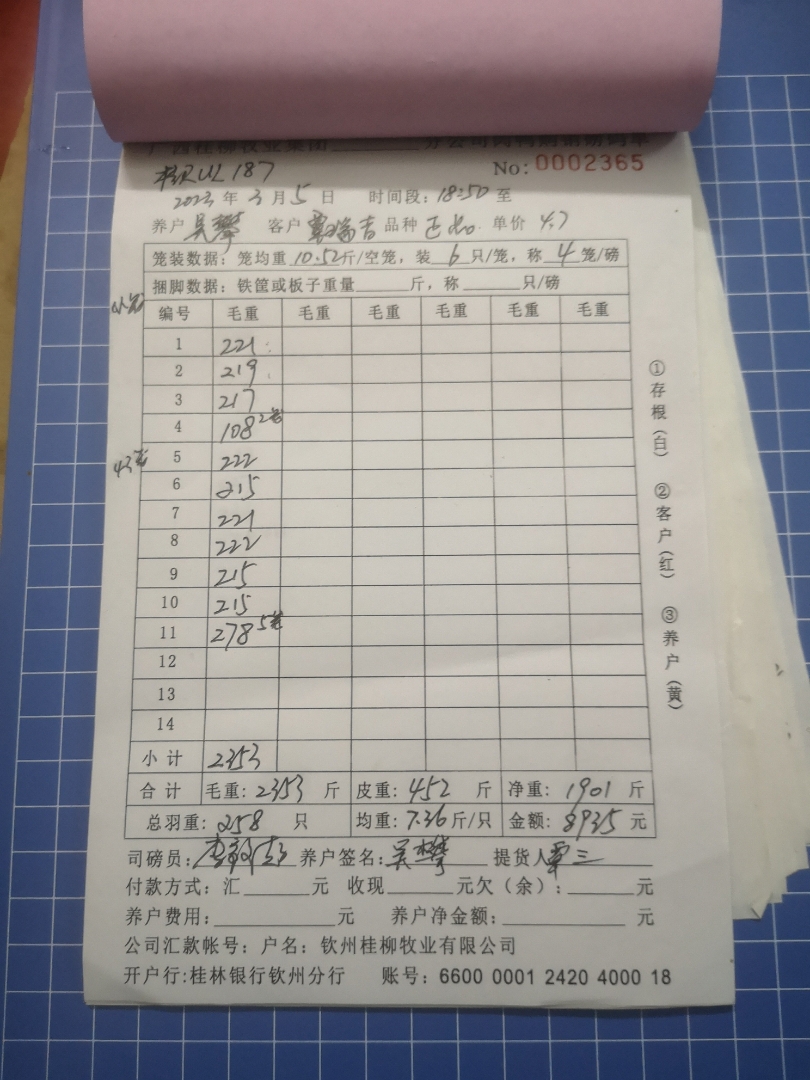 广西桂柳牧业集团______分公司肉鸭购销磅码单
187
No: 0002365
2023 年 3 月 5 日 时间段: 18:50 至
养户 吴攀 客户 覃瑞吉 品种 正品 单价 4.7
笼装数据: 笼均重 10.52 斤/空笼, 装 6 只/笼, 称 4 笼/磅
捆脚数据: 铁筐或板子重量______斤, 称______只/磅
编号 毛重 毛重 毛重 毛重 毛重 毛重
1 221
2 219
3 217
4 108 2笼
43笼
5 222
6 215
7 221
8 222
9 215
10 215
11 278 5笼
12
13
14
小计 2353
合计 毛重: 2353 斤 皮重: 452 斤 净重: 1901 斤
总羽重: 258 只 均重: 7.36 斤/只 金额: 8935 元
司磅员: 养户签名: 吴攀 提货人 覃三
付款方式: 汇______元 收现______元欠(余): ______元
养户费用: ______元 养户净金额: ______元
公司汇款帐号: 户名: 钦州桂柳牧业有限公司
开户行:桂林银行钦州分行 账号: 6600 0001 2420 4000 18
①存根(白) ②客户(红) ③养户(黄)